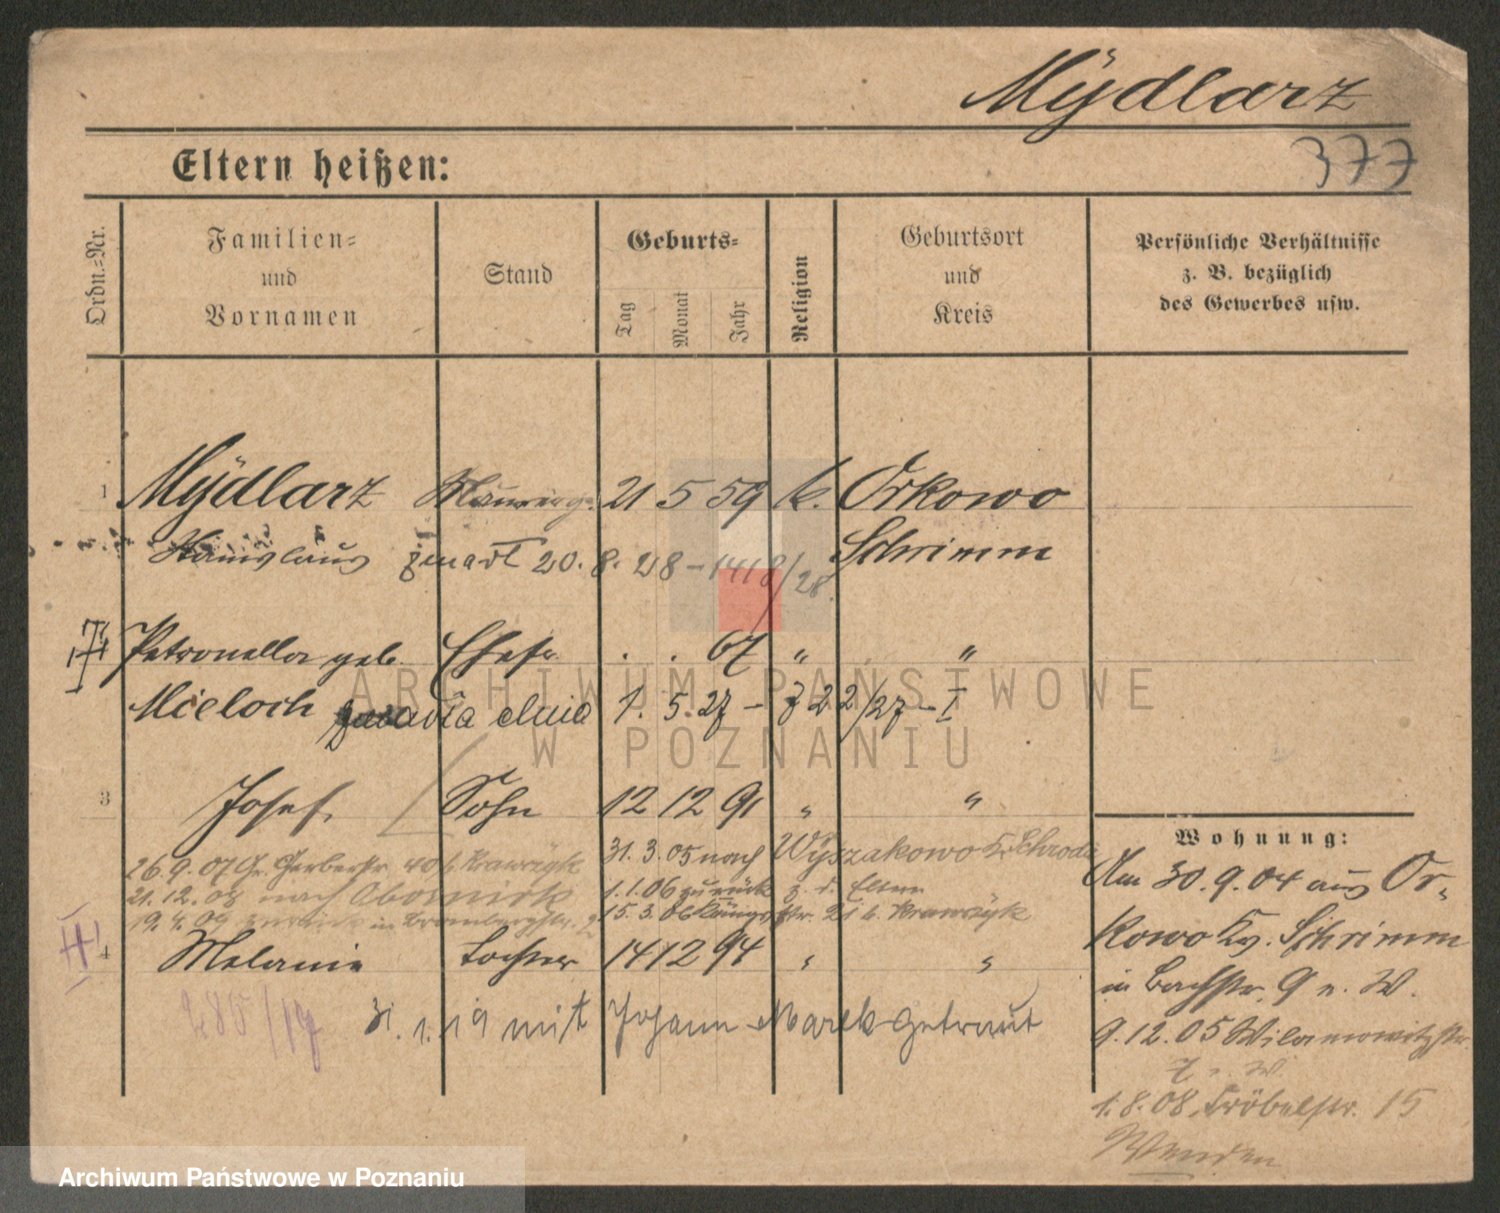 Mÿdlarz
377
Eltern heißen:
Ordn.-Nr.
Familien- und Vornamen
Stand
Geburts-
Tag
Monat
Jahr
Religion
Geburtsort und Kreis
Persönliche Verhältnisse z. B. bezüglich des Gewerbes usw.
1 Mÿdlarz Maurerg. 21 5 59 k. Orkowo
Stanislaus zmarł 20. 8. 28 – 1418/28. Schrimm
Petronella geb. Ehefr. . . 67 " "
Mieloch zmarła dnia 1. 5. 27 – 822/27 – I
3 Josef. Sohn 12 12 91 " "
31. 3. 05 nach Wÿszakowo Kr. Schroda
26. 9. 07 Gr. Gerberstr. 40 b. Krawczyk
1. 1. 06 zurück z. d. Eltern
21. 12. 08 nach Obornik
15. 3. 06 str. 21 b. Krawczyk
19. 4. 09 zurück in Brombergstr.
4 Melanie Tochter 14 12 94 " "
285/19
31. 1. 19 mit Johann Marek getraut
Wohnung:
Am 30. 9. 04 aus Or-
kowo Kr. Schrimm
in Bachstr. 9 n. W.
9. 12. 05 Wilamowitzstr.
7 n. W.
1. 8. 08. Fröbelstr. 15
Wenden
ARCHIWUM PAŃSTWOWE
W POZNANIU
Archiwum Państwowe w Poznaniu